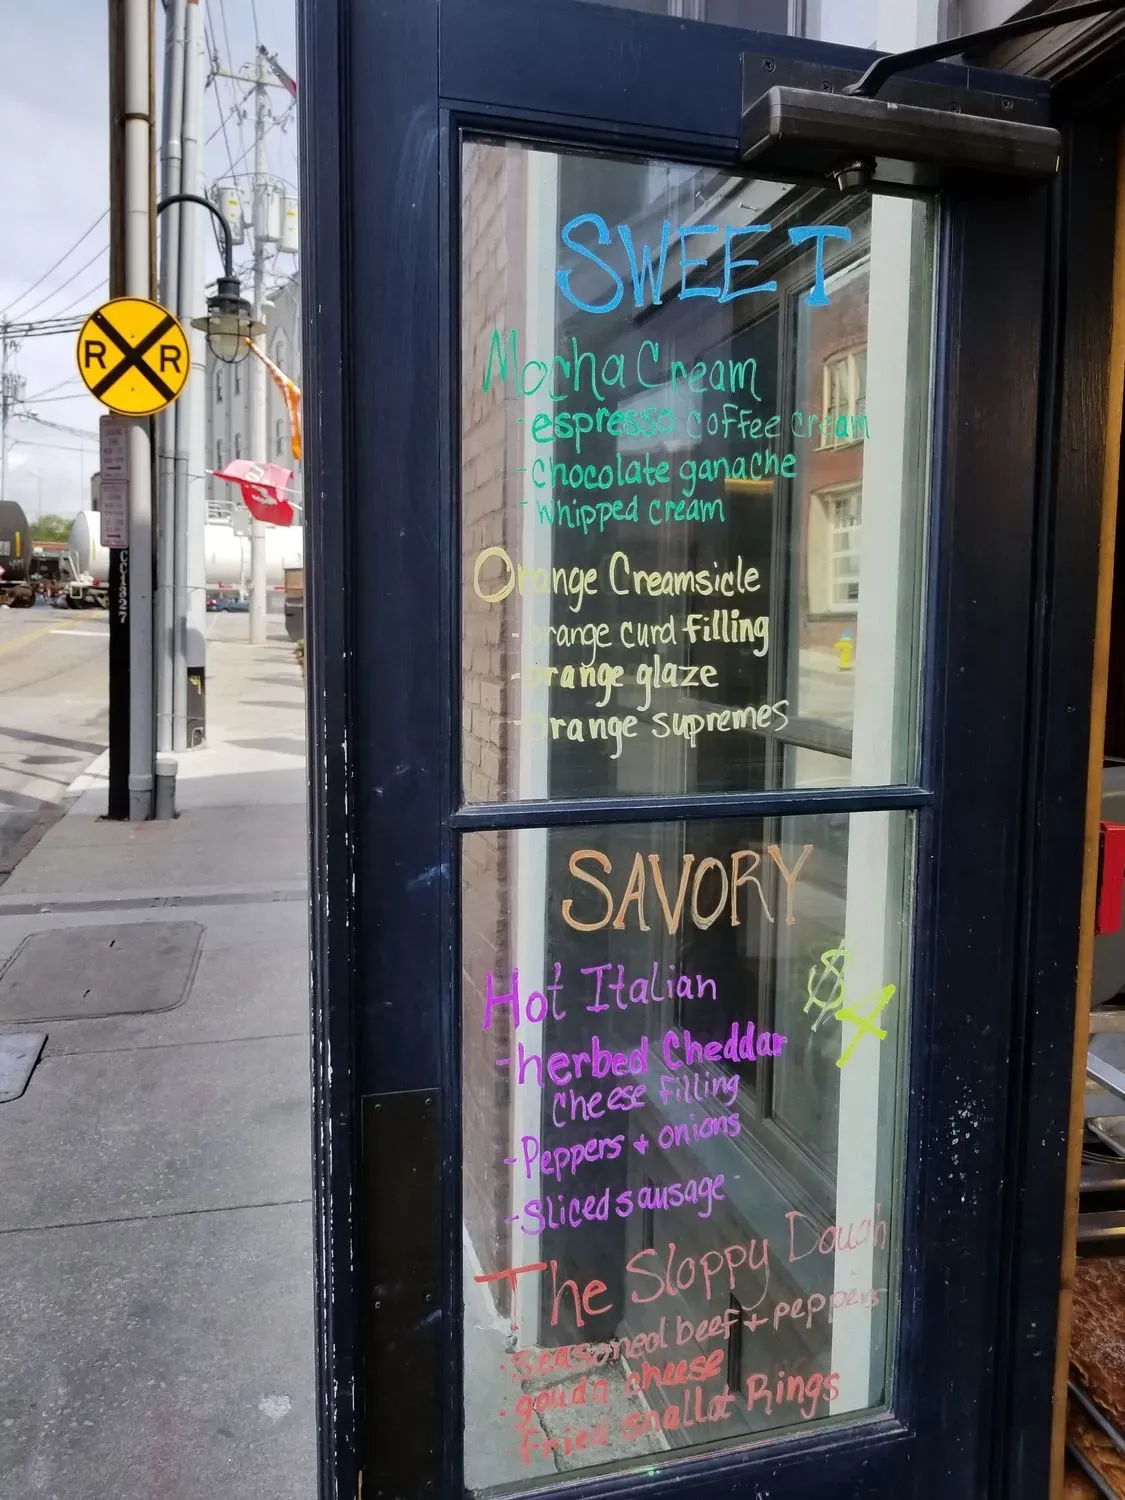 R R
CC1327
SWEET
Mocha Cream
- espresso coffee cream
- Chocolate ganache
- Whipped cream
Orange Creamsicle
- orange curd filling
- orange glaze
- orange supremes
SAVORY
$4
Hot Italian
- herbed Cheddar
Cheese Filling
- Peppers + onions
- Sliced sausage
The Sloppy Dough
· Seasoned beef + peppers
· gouda cheese
· fried shallot Rings